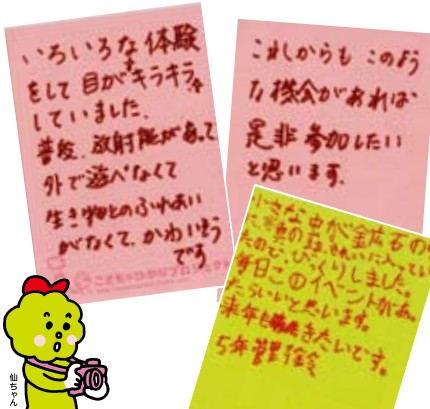 いろいろな体験
をして目がキラキラ
していました。
普段、放射能があって
外で遊べなくて
生き物とのふれあい
がなくて、かわいそう
です
こども☆ひかりプロジェクト
これからも このよう
な機会があれば
是非 参加したい
と思います。
小さな虫が金広石の中
たので、びっくりしました。
毎日このイベントがあっ
たらいいと思います。
来年も きたいです。
5年
仙ちゃん